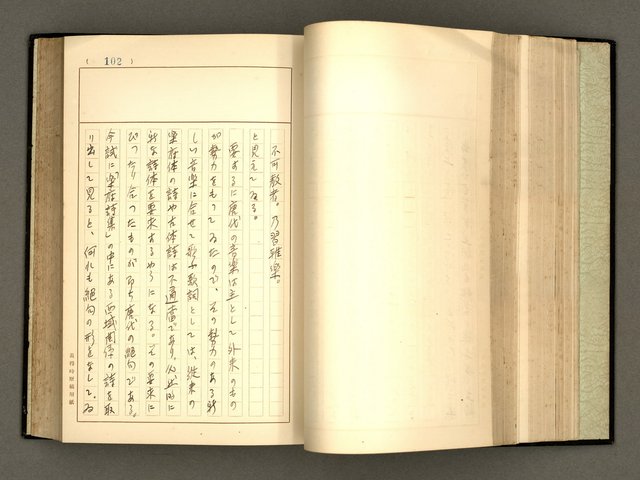 ( 102 )
不可教者。乃習雅楽。
と見えてゐる。
要するに唐代の音楽は主として外来のもの
が勢力をもってゐたので、その勢力のある新
しい音楽に合せて歌ふ歌詞としては、従来の
楽府体の詩や古体詩は不適當であり、必然的に
新な詩体を要求するやうになる。その要求に
ぴったり合ったものが即ち唐代の絶句である。
今試に「楽府詩集」の中にある西域関係の詩を取
り出して見ると、何れも絶句の形をなして、ゐ
黃得時原稿用紙